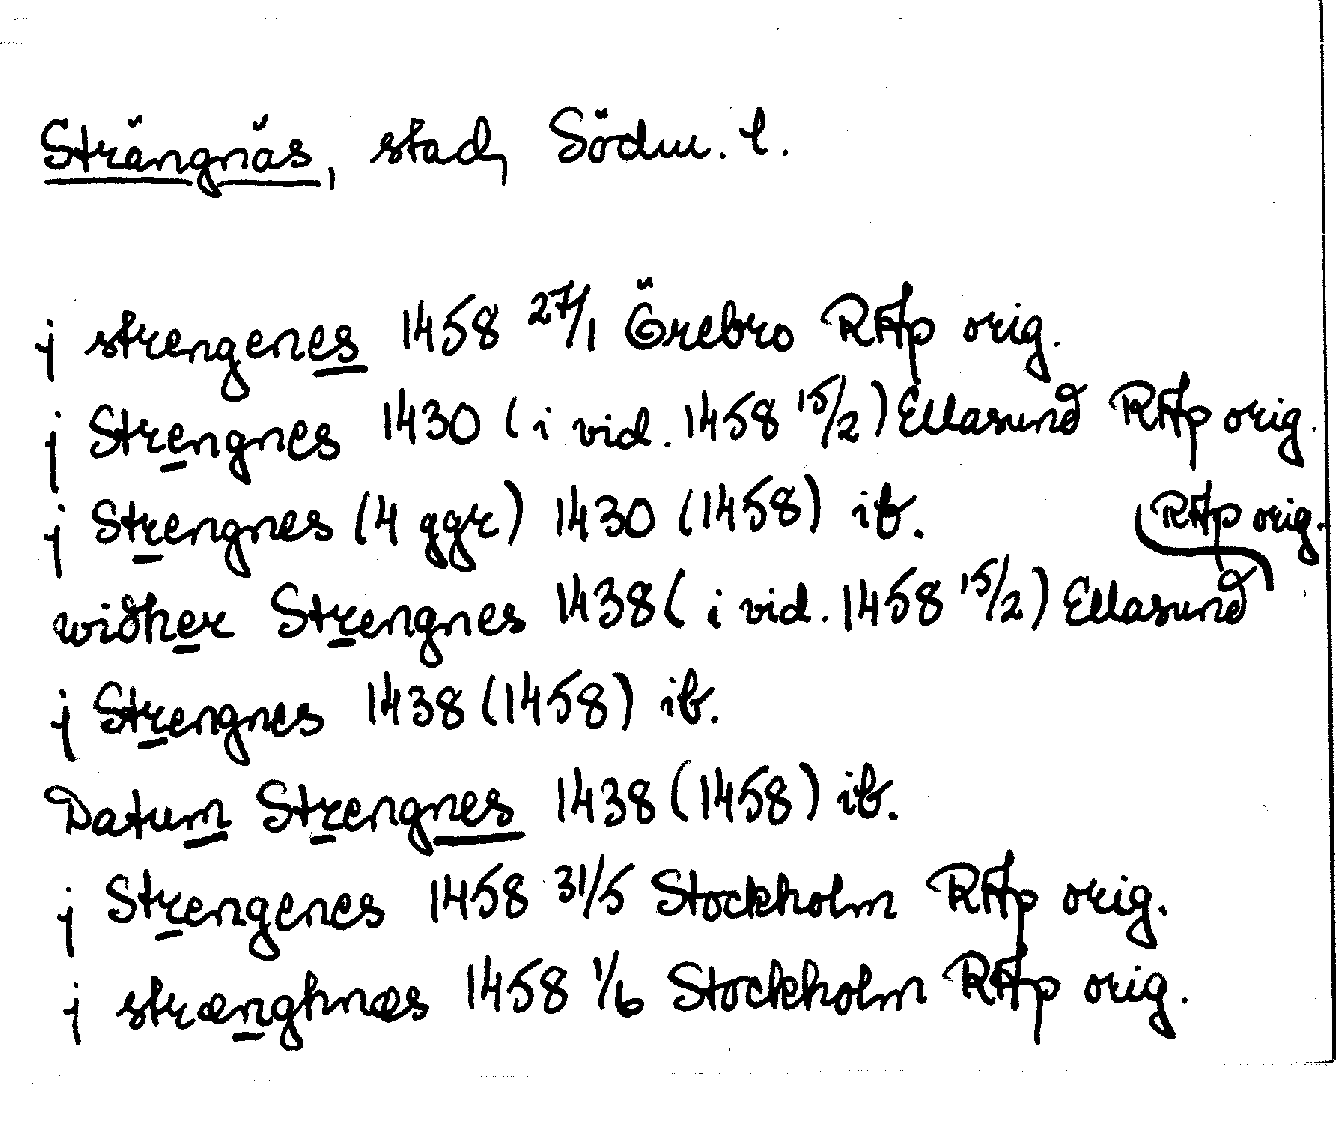 Strängnäs, stad, Södm. l.
j strengenes 1458 27/1 Örebro RAp orig.
j Strengnes 1430 (i vid. 1458 15/2) Ellasund RAp orig.
j Strengnes (4 ggr) 1430 (1458) ib.
widher Strengnes 1438 (i vid. 1458 15/2) Ellasund RAp orig.
j Strengnes 1438 (1458) ib.
Datum Strengnes 1438 (1458) ib.
j Strengenes 1458 31/5 Stockholm RAp orig.
j strænghnæs 1458 1/6 Stockholm RAp orig.